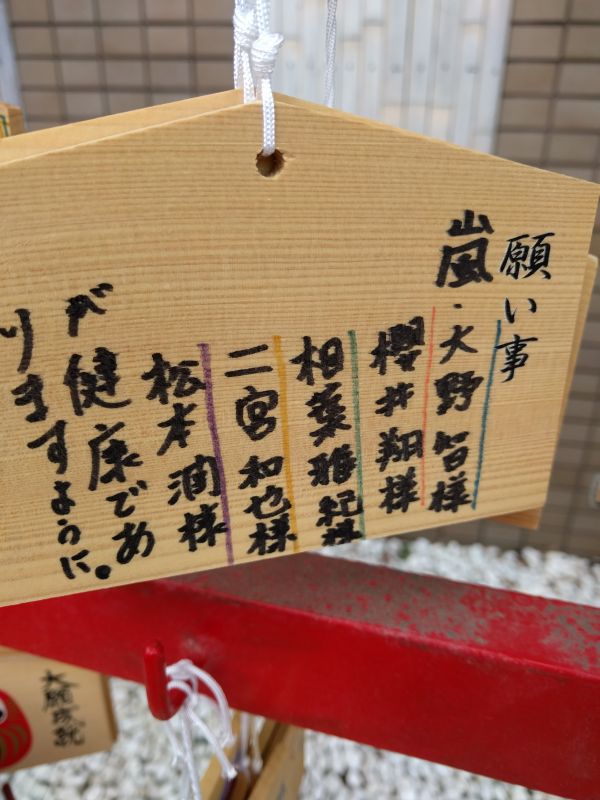 願い事
嵐・大野智様
櫻井翔様
相葉雅紀様
二宮和也様
松本潤様
が健康であ
りますように。
大願成就